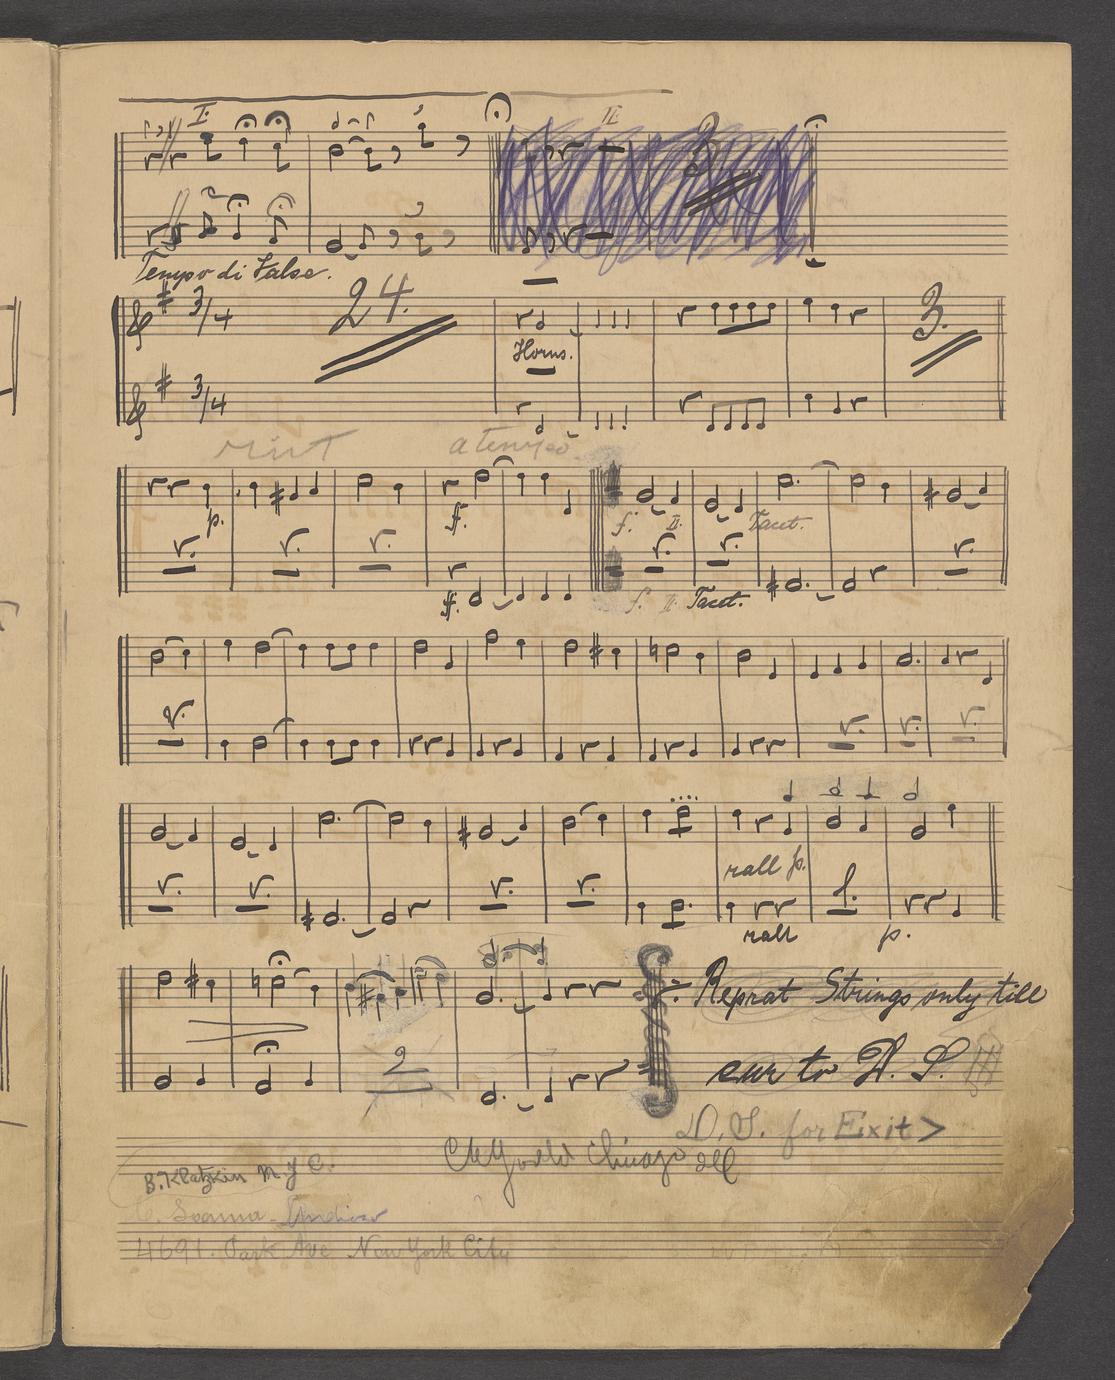 I. II. 2
Tempo di Valse.
3/4 24. Horns. 3.
3/4
a tempo
p. f. f. II. Tacet.
f. f. II. Tacet.
rall p.
rall 1. p.
Repeat Strings only till
2 cue to D. S.
D. S. for Exit >
Chicago Ill
B. Klatzkin N. Y C.
4691. Park Ave New York City